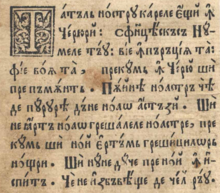 Татъль ностру кареле ещй ꙟ
Черюри : Сфинцѣскъсе Ну
меле тъу : віе ꙟпърціѧ та
фіе воѧ та, прекумь ꙟ Черю ши
пре пъмжнть. Пѫинѣ ноастръ чѣ
де пурурѣ дъне ноаш астъзи. Ши
не ꙗртъ ноаш грешалеле ноастре, пре
кумь ши ной ертъмь грешицилѡрь
нощри. Ши ну не дуче пре ной ꙟ и
спитъ. Че не избъвѣще де чел ръу.